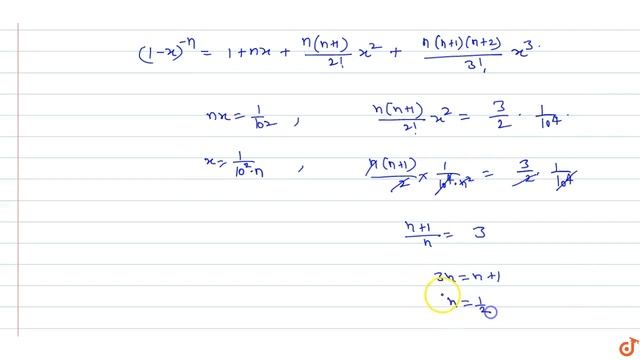 (1-x)^{-n} = 1 + nx + \frac{n(n+1)}{2!} x^2 + \frac{n(n+1)(n+2)}{3!} x^3.
nx = \frac{1}{10^2} , \frac{n(n+1)}{2!} x^2 = \frac{3}{2} \cdot \frac{1}{10^4}.
x = \frac{1}{10^2 \cdot n} , \frac{n(n+1)}{2} \times \frac{1}{10^4 \cdot n^2} = \frac{3}{2} \cdot \frac{1}{10^4}
\frac{n+1}{n} = 3
3n = n+1
n = \frac{1}{2}